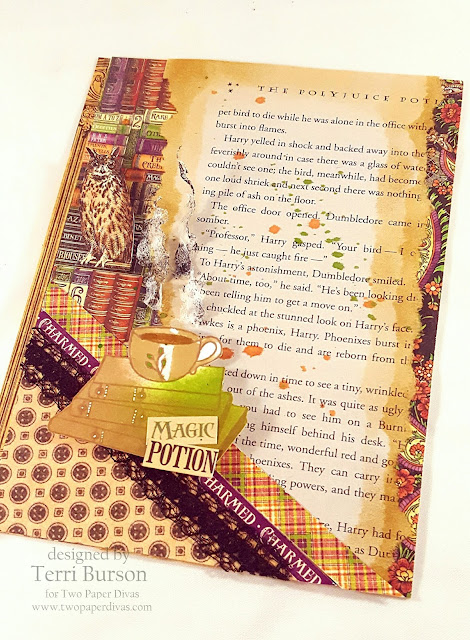 THE POLYJUICE POTI
pet bird to die while he was alone in the office with
burst into flames.
Harry yelled in shock and backed away into the
feverishly around in case there was a glass of wate
couldn't see one; the bird, meanwhile, had become
one loud shriek and next second there was nothing
ing pile of ash on the floor.
The office door opened. Dumbledore came in
somber.
"Professor," Harry gasped. "Your bird — I c
hing — he just caught fire —"
To Harry's astonishment, Dumbledore smiled.
"About time, too," he said. "He's been looking dr
been telling him to get a move on."
chuckled at the stunned look on Harry's face.
wkes is a phoenix, Harry. Phoenixes burst in
for them to die and are reborn from th
ked down in time to see a tiny, wrinkled
out of the ashes. It was quite as ugly
you had to see him on a Burni
ng himself behind his desk. "H
f the time, wonderful red and go
hoenixes. They can carry i
ing powers, and they ma
re, Harry had fo
" as Du
RARE
CHARMED
MAGIC
POTION
CHARMED · CHARMED
designed by
Terri Burson
for Two Paper Divas
www.twopaperdivas.com